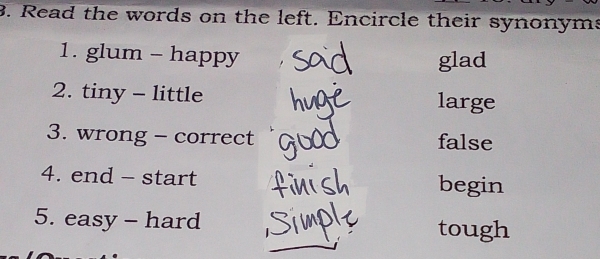 3. Read the words on the left. Encircle their synonyms
1. glum – happy sad glad
2. tiny – little huge large
3. wrong – correct good false
4. end – start finish begin
5. easy – hard simple tough